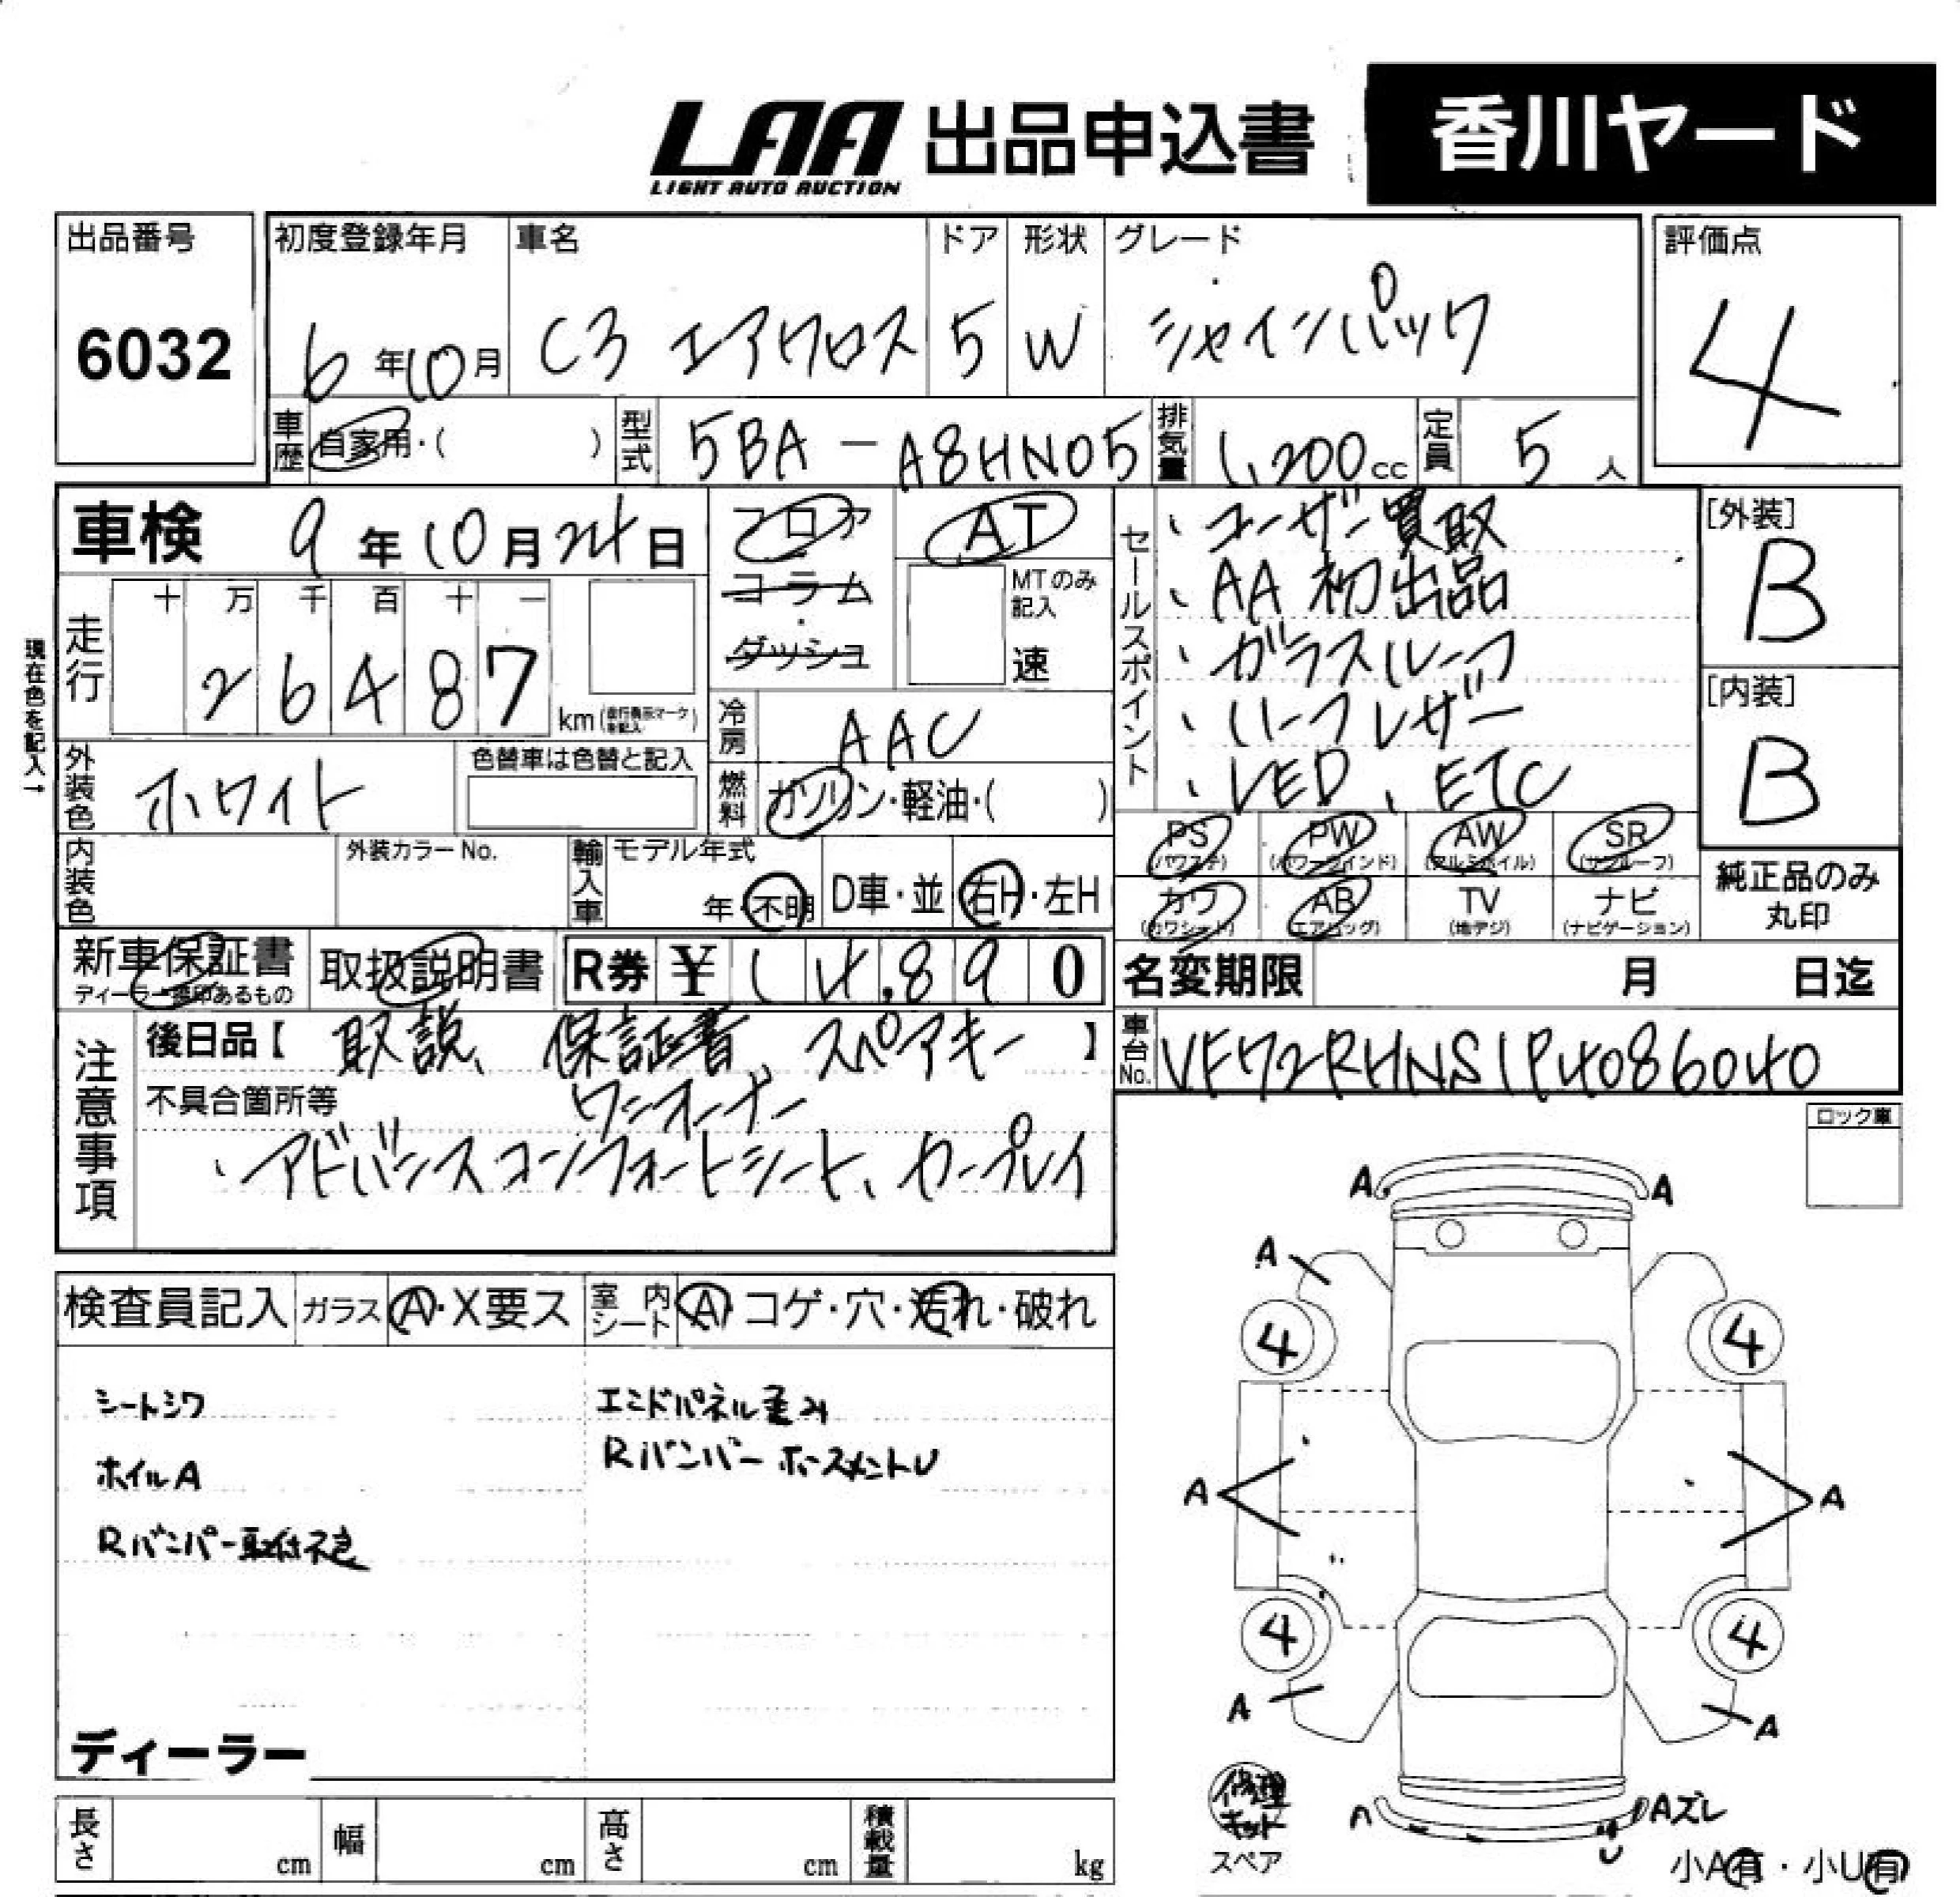 LAA 出品申込書 香川ヤード
LIGHT AUTO AUCTION
出品番号 初度登録年月 車名 ドア 形状 グレード 評価点
6032 6年10月 C3 エアクロス 5 W シャインパック 4
車歴 自家用・( ) 型式 5BA-A8HN05 排気量 1,200cc 定員 5人
車検 9年10月24日 フロア AT
コラム・ダッシュ MTのみ記入 速
セールスポイント
、ユーザー買取
、AA初出品
、ガラスルーフ
、ハーフレザー
、LED、ETC
[外装] B
[内装] B
現在色を記入↑
走行 十 万 千 百 十 一
26487 km(走行表示マークを記入)
冷房 AAC
外装色 ホワイト 色替車は色替と記入
燃料 ガソリン・軽油・( )
PS (パワステ) PW (パワーウインド) AW (アルミホイル) SR (サンルーフ)
カワ (カワシート) AB (エアバッグ) TV (地デジ) ナビ (ナビゲーション)
純正品のみ丸印
内装色 外装カラーNo. 輸入車 モデル年式 年・不明 D車・並 右H・左H
新車保証書 取扱説明書 R券 ¥ 14,890
ディーラー捺印あるもの
名変期限 月 日迄
車台No. VF72RHNS1P4086040
注意事項
後日品【 取説、保証書、スペアキー 】
不具合箇所等 ワンオーナー
、アドバンスコンフォートシート、カープレイ
ロック車
検査員記入 ガラス A・X要ス 室内シート A・コゲ・穴・汚れ・破れ
シートシワ エンドパネル歪み
ホイルA Rバンパーホースメント U
Rバンパー取付不良
ディーラー
A A
A
4 4
A A
4 4
A A
修理キット
スペア
A Aズレ
U
小A有・小U有
長さ cm 幅 cm 高さ cm 積載量 kg